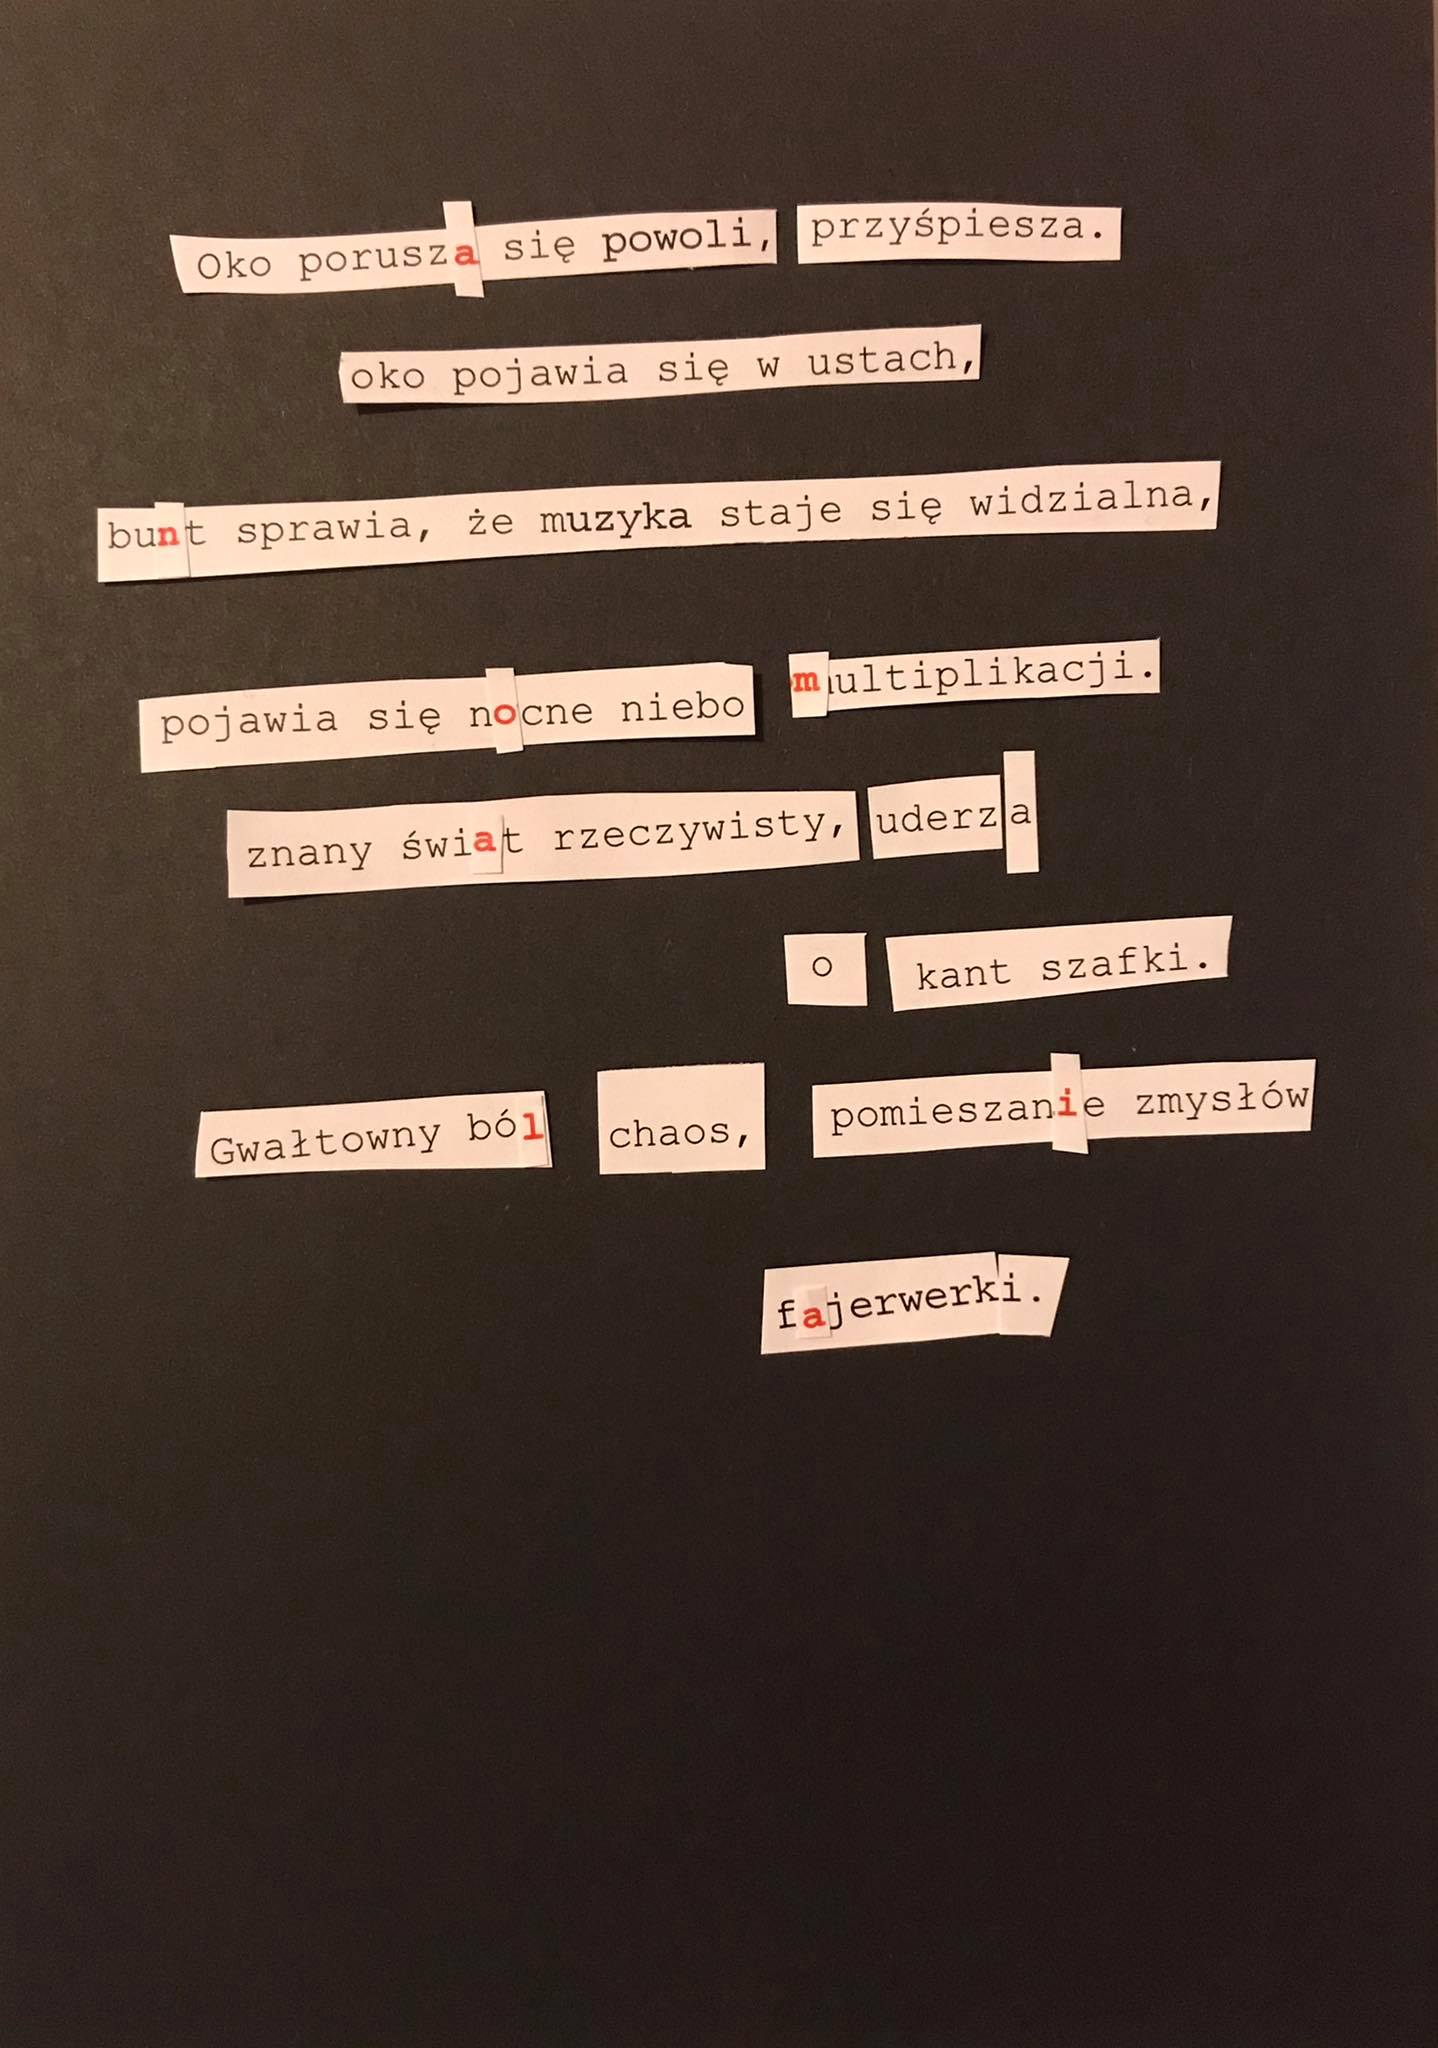 Oko porusza się powoli, przyśpiesza.
oko pojawia się w ustach,
bunt sprawia, że muzyka staje się widzialna,
pojawia się nocne niebo multiplikacji.
znany świat rzeczywisty, uderza
o kant szafki.
Gwałtowny ból chaos, pomieszanie zmysłów
fajerwerki.